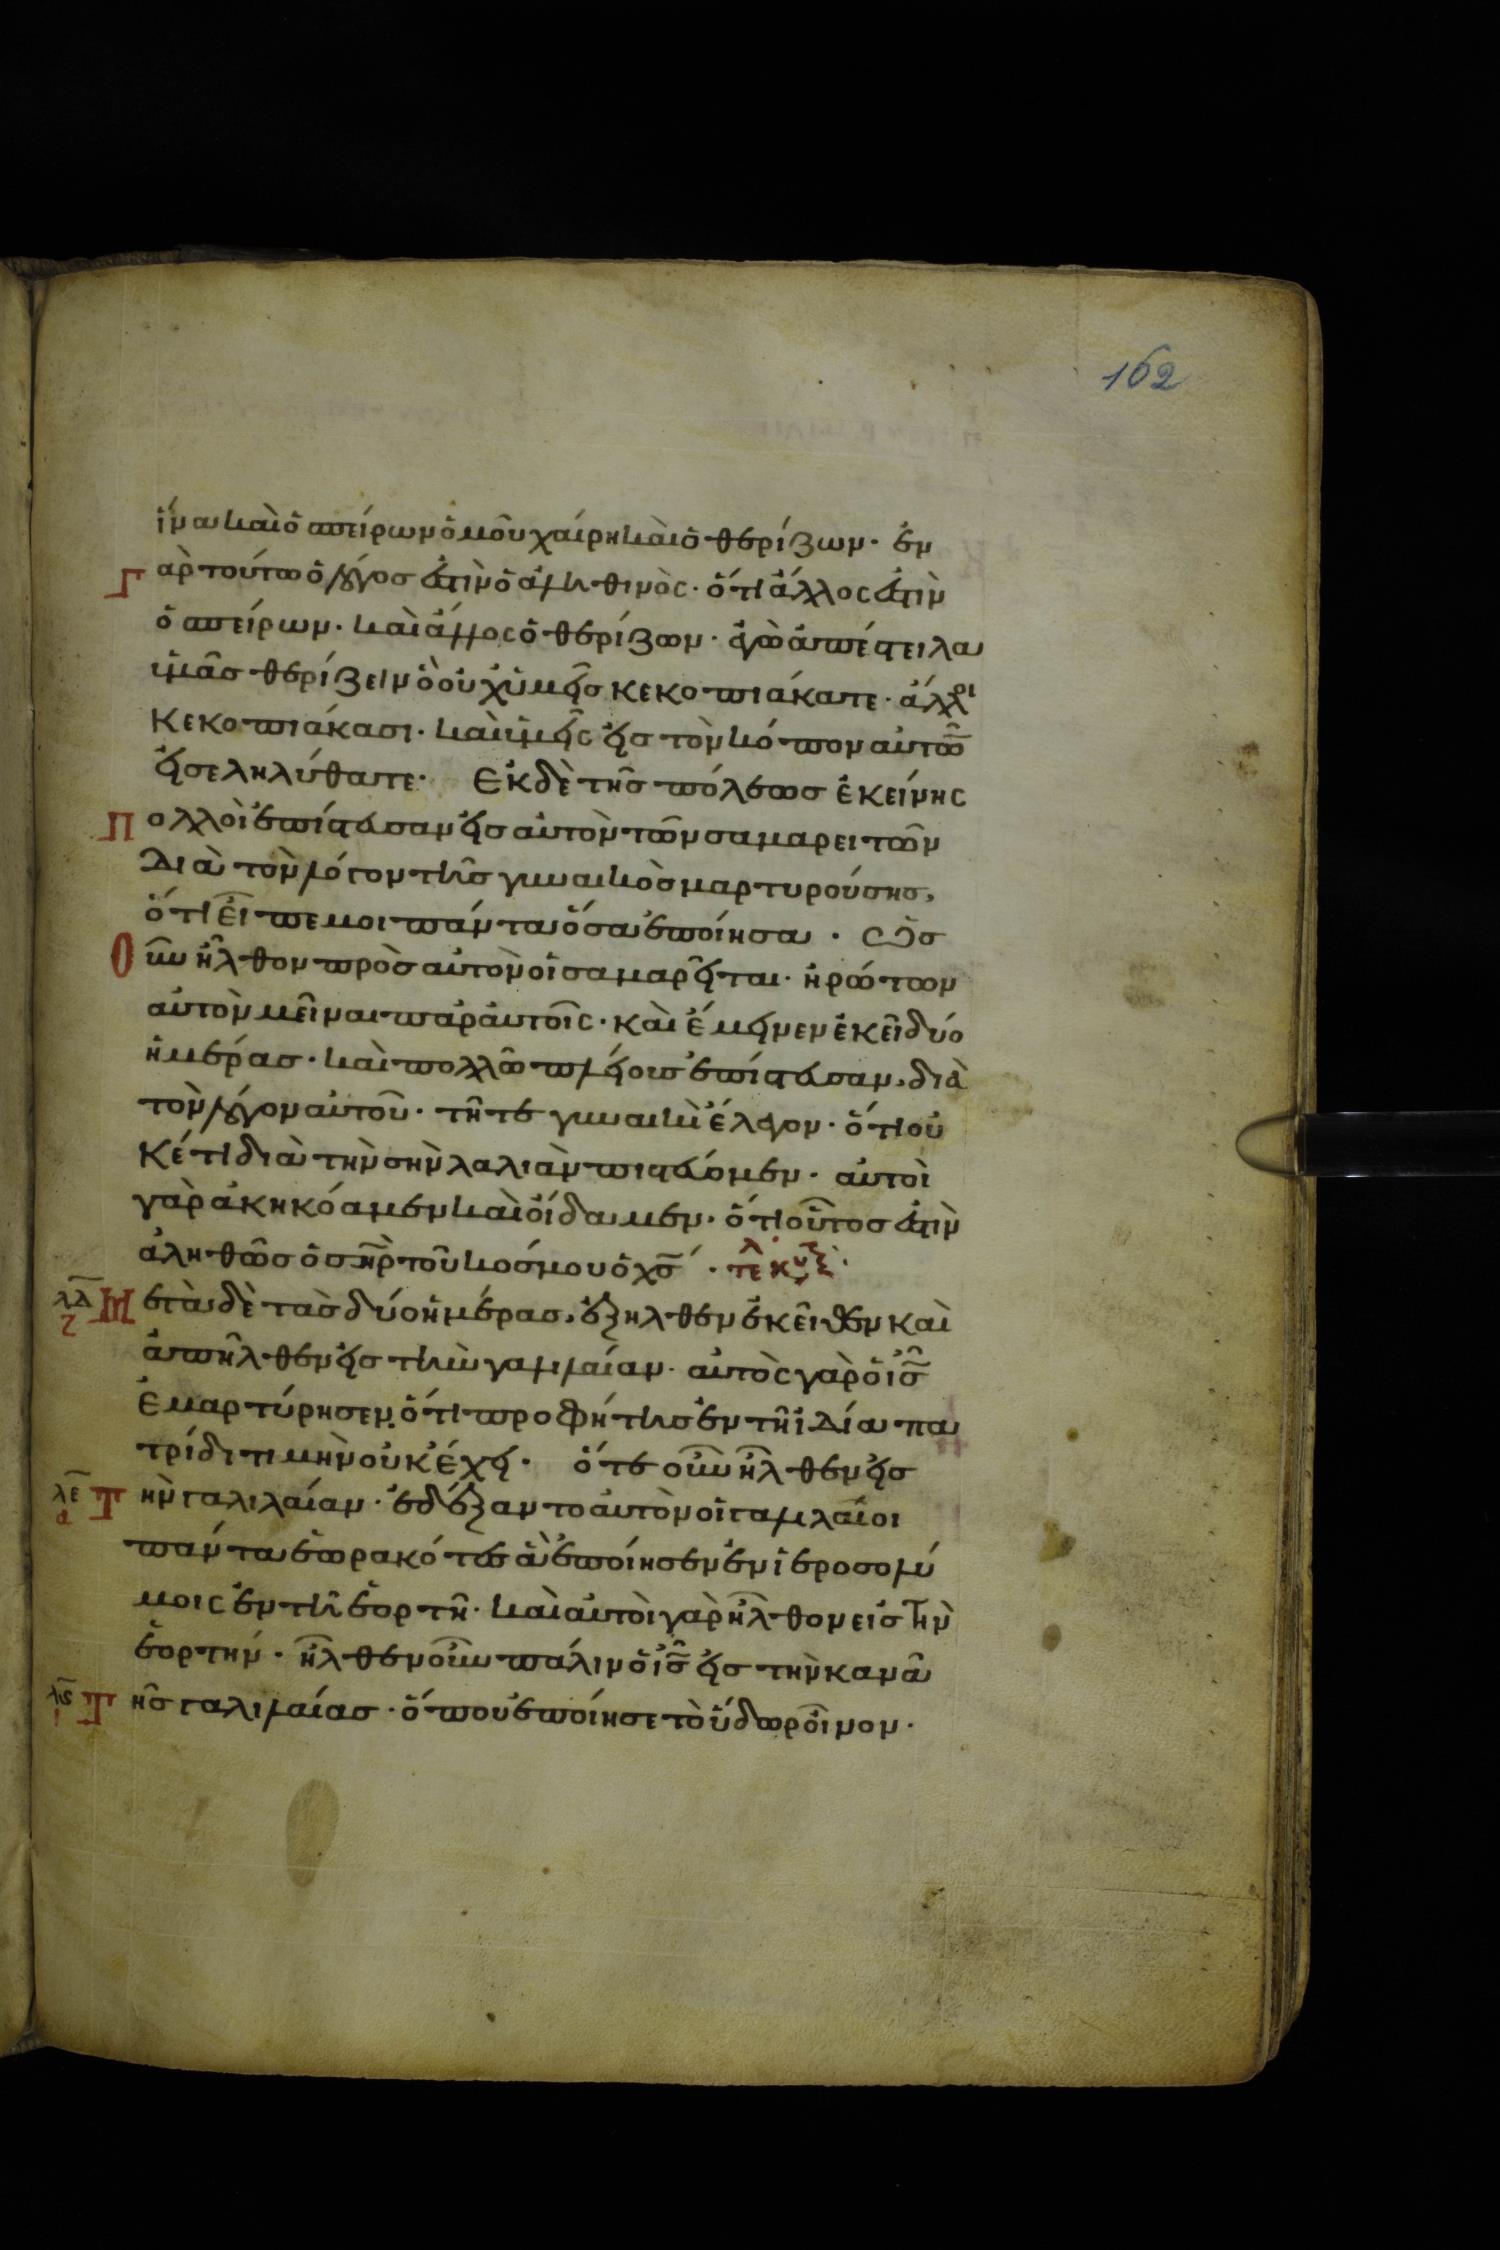 162
ἵνα καὶ ὁ σπείρων ὁμοῦ χαίρη καὶ ὁ θερίζων· ἐν
Γ αρ τούτω ὁ λόγος ἐστὶν ὁ ἀληθινὸς· ὅτι ἄλλος ἐστὶν
ὁ σπείρων· καὶ ἄλλος ὁ θερίζων· ἐγὼ ἀπέστειλα
ὑμᾶς θερίζειν ὃ οὐχ ὑμεῖς κεκοπιάκατε· ἄλλοι
κεκοπιάκασι· καὶ ὑμεῖς εἰς τὸν κόπον αὐτῶ̅
εἰσεληλύθατε· Ἐκ δὲ τῆς πόλεως ἐκείνης
Π ολλοὶ ἐπίστευσαν εἰς αὐτὸν τῶν σαμαρειτῶν
διὰ τὸν λόγον τῆς γυναικὸς μαρτυρούσης,
ὅτι εἶπε μοι πάντα ὅσα ἐποίησα· Ὡς
Ο υν ἦλθον πρὸς αὐτὸν οἱ σαμαρεῖται· ἠρώτων
αὐτὸν μεῖναι παρ' αὐτοῖς· καὶ ἔμεινεν ἐκεῖ δύο
ἡμέρας· καὶ πολλῶ πλείους ἐπίστευσαν, διὰ
τὸν λόγον αὐτοῦ· τῆ τε γυναικὶ ἔλεγον· ὅτι οὐ
κέτι διὰ τὴν σὴν λαλιὰν πιστεύομεν· αὐτοὶ
γὰρ ἀκηκόαμεν καὶ οἴδαμεν· ὅτι οὗτος ἐστὶν
ἀληθῶς ὁ σ̅η̅ρ̅ τοῦ κόσμου ὁ χ̅ς̅·
λδ ζ Μ ετὰ δὲ τὰς δύο ἡμέρας, ἐξῆλθεν ἐκεῖθεν καὶ
ἀπῆλθεν εἰς τὴν γαλιλαίαν· αὐτὸς γὰρ ὁ ι̅ς̅
ἐμαρτύρησεν, ὅτι προφήτης ἐν τῆ ἰδία πα
τρίδι τιμὴν οὐκ ἔχει· ὅτε οὖν ἦλθεν εἰς
λε α Τ ὴν γαλιλαίαν· ἐδέξαντο αὐτὸν οἱ γαλιλαῖοι
πάντα ἑωρακότες ἃ ἐποίησεν ἐν ἱεροσολύ
μοις ἐν τῆ ἑορτῆ· καὶ αὐτοὶ γὰρ ἦλθον εἰς τὴν
ἑορτήν· ἦλθεν οὖν πάλιν ὁ ι̅ς̅ εἰς τὴν κανᾶ
λϛ ι Τ ῆς γαλιλαίας· ὅπου ἐποίησε τὸ ὕδωρ οἶνον·